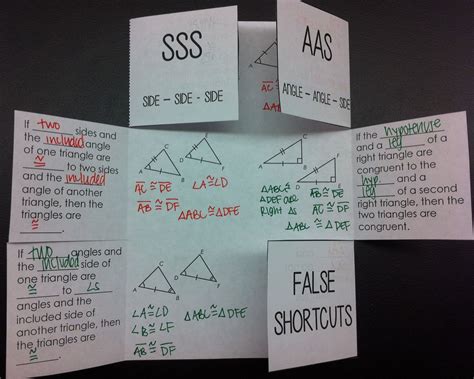 SSS
SIDE - SIDE - SIDE
AAS
ANGLE - ANGLE - SIDE
AC ≅
ΔA
If two sides and
the included angle
of one triangle are
≅ to two sides
and the included
angle of another
triangle, then the
triangles are
≅.
A
B
C
D
E
F
AC ≅ DE
∠A ≅ ∠D
AB ≅ DF
ΔABC ≅ ΔDFE
ΔABC ≅
ΔDEF are
Right Δs
AB ≅ DE
AC ≅ DF
ΔABC ≅ ΔDEF
If the hypotenuse
and a leg of a
right triangle are
congruent to the
hyp. and a
leg of a second
right triangle, then the
two triangles are
congruent.
If two angles and
the included side of
one triangle are
≅ to ∠s
angles and the
included side of
another triangle, then
the triangles are
≅.
A
B
C
D
E
F
∠A ≅ ∠D
∠B ≅ ∠F
AB ≅ DF
ΔABC ≅ ΔDFE
FALSE
SHORTCUTS